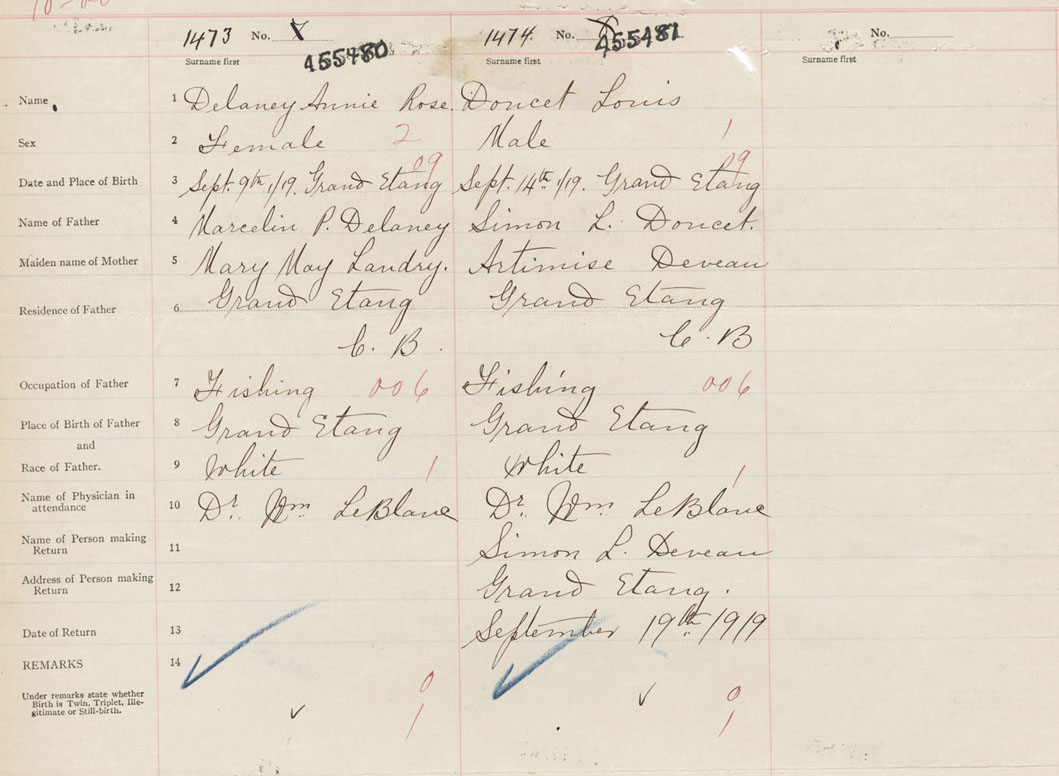 10-00
1473 No. X 455480 1474 No. 8 455481 No.
Surname first Surname first Surname first
Name 1 Delaney Annie Rose. Doucet Louis
Sex 2 Female 2 Male 1
09 09
Date and Place of Birth 3 Sept. 9th, 1/19. Grand Etang Sept. 14th 1/19. Grand Etang
Name of Father 4 Marcelin P. Delaney Simon L. Doucet.
Maiden name of Mother 5 Mary May Landry. Artimise Deveau
Residence of Father 6 Grand Etang Grand Etang
C. B. C. B
Occupation of Father 7 Fishing 006 Fishing 006
Place of Birth of Father 8 Grand Etang Grand Etang
and
Race of Father. 9 White 1 White 1
Name of Physician in attendance 10 Dr. Wm. LeBlanc Dr. Wm. LeBlanc
Name of Person making Return 11 Simon L. Deveau
Address of Person making Return 12 Grand Etang.
Date of Return 13 September 19th 1919
REMARKS 14
Under remarks state whether 0 0
Birth is Twin, Triplet, Ille-
gitimate or Still-birth. 1 1